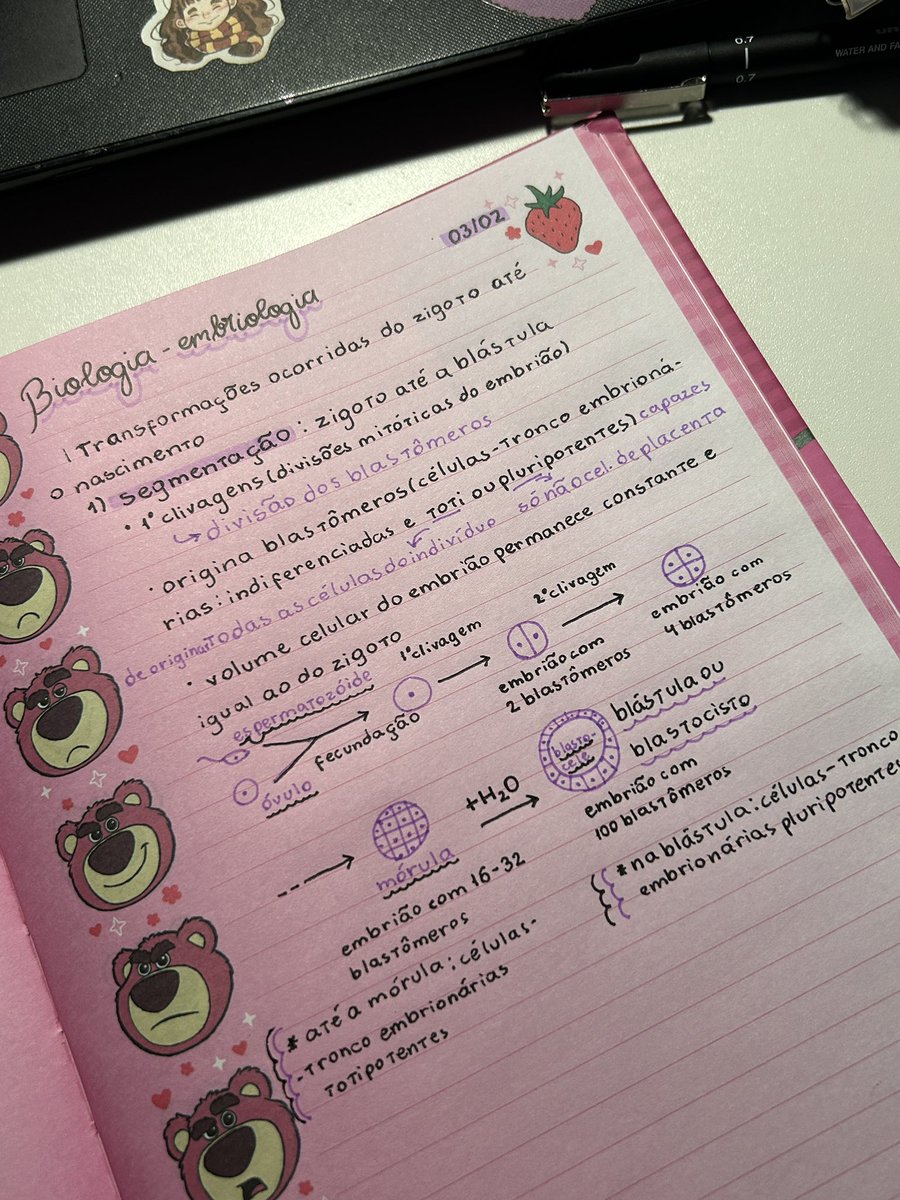 0.7
0.7
WATER AND FA
03/02
Biologia - embriologia
Transformações ocorridas do zigoto até
o nascimento
1) segmentação: zigoto até a blástula
• 1ª clivagens (divisões mitóticas do embrião)
divisão dos blastômeros
• origina blastômeros (células-tronco embrioná-
rias: indiferenciadas e toti ou pluripotentes) capazes
de originar todas as células do indivíduo só não cel. de placenta
• volume celular do embrião permanece constante e
igual ao do zigoto
espermatozóide
óvulo
fecundação
1ª clivagem
embrião com
2 blastômeros
2ª clivagem
embrião com
4 blastômeros
mórula
embrião com 16-32
blastômeros
+H₂O
blasto-
cele
blástula ou
blastocisto
embrião com
100 blastômeros
* até a mórula: células-
-tronco embrionárias
totipotentes
* na blástula: células-tronco
embrionárias pluripotentes